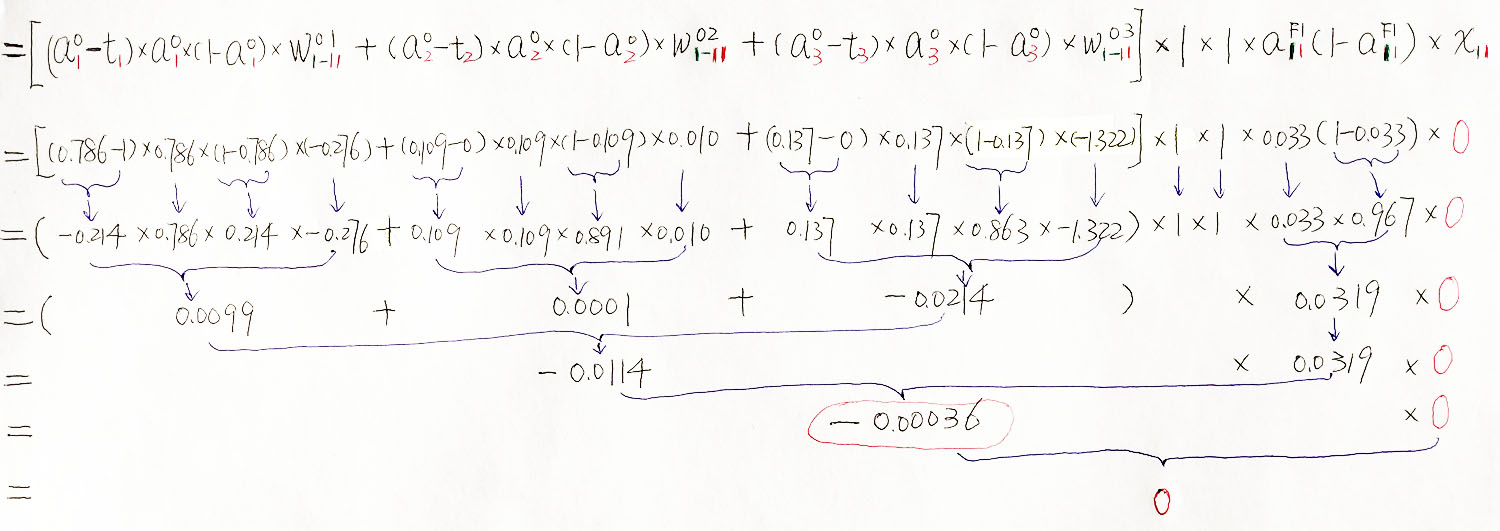 =[(a₁⁰-t₁)×a₁⁰×(1-a₁⁰)×w₁₋₁₁⁰¹ + (a₂⁰-t₂)×a₂⁰×(1-a₂⁰)×w₁₋₁₁⁰² + (a₃⁰-t₃)×a₃⁰×(1-a₃⁰)×w₁₋₁₁⁰³]×1×1×a₁₁ᶠ¹(1-a₁₁ᶠ¹)×x₁₁
=[(0.786-1)×0.786×(1-0.786)×(-0.276)+(0.109-0)×0.109×(1-0.109)×0.010 +(0.137-0)×0.137×(1-0.137)×(-1.322)]×1×1×0.033(1-0.033)×0
=(-0.214×0.786×0.214×-0.276+0.109×0.109×0.891×0.010 + 0.137×0.137×0.863×-1.322)×1×1×0.033×0.967×0
=( 0.0099 + 0.0001 + -0.0214 ) × 0.0319 × 0
= -0.0114 × 0.0319 × 0
= -0.00036 × 0
= 0